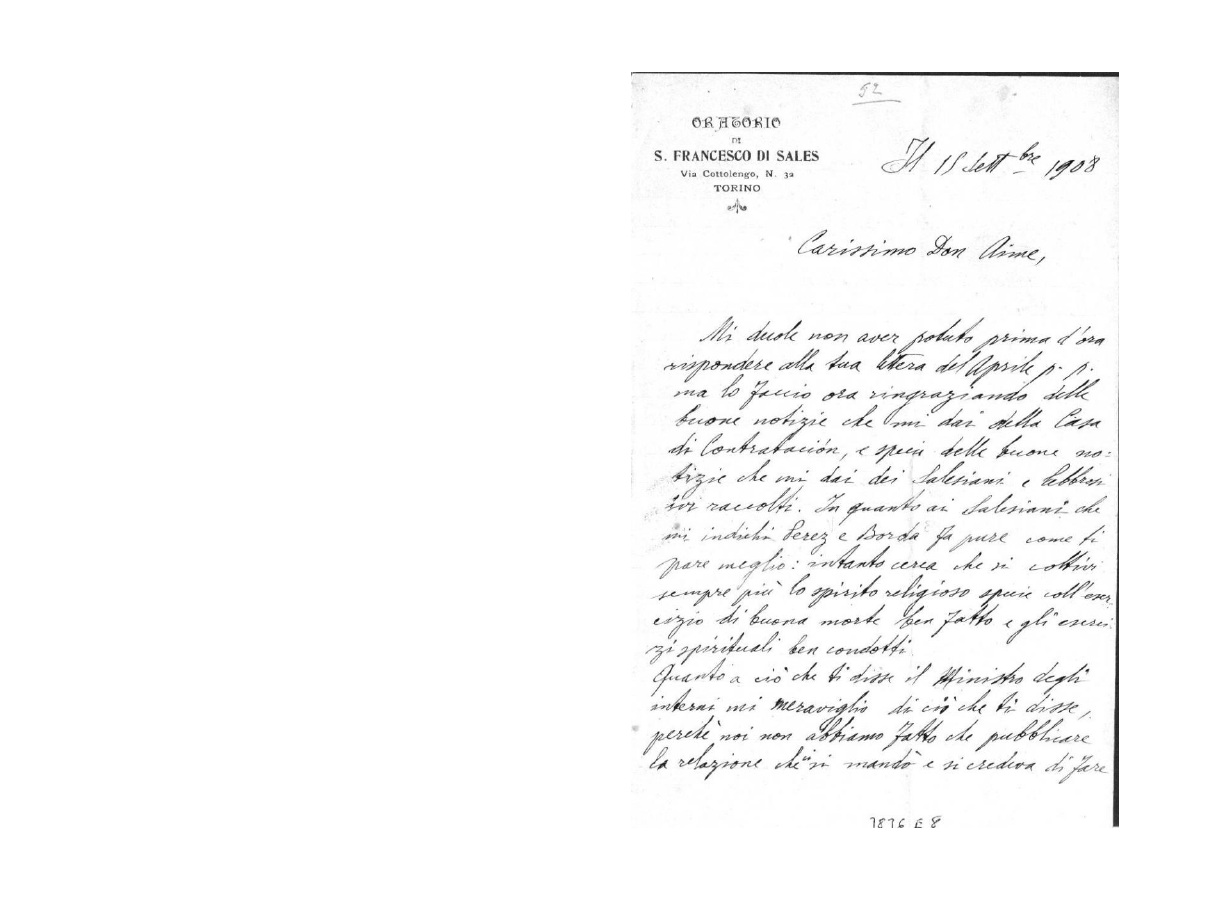 52
ORATORIO
DI
S. FRANCESCO DI SALES
Via Cottolengo, N. 32
TORINO
Il 15 Sett bre 1908
Carissimo Don Aime,
Mi duole non aver potuto prima d'ora
rispondere alla tua lettera del Aprile p. p.
ma lo faccio ora ringraziando delle
buone notizie che mi dai della Casa
di Contratación, e specie delle buone no=
tizie che mi dai dei Salesiani e lebbrosi
ivi raccolti. In quanto ai Salesiani che
mi indichi Perez e Borda fa pure come ti
pare meglio: intanto cerca che si coltivi
sempre più lo spirito religioso specie coll'eser-
cizio di buona morte ben fatto e gli eserci-
zi spirituali ben condotti.
Quanto a ciò che ti disse il Ministro degli
interni mi meraviglio di ciò che ti disse,
perchè noi non abbiamo fatto che pubblicare
la relazione che si mandò e si credeva di fare
7876 E 8